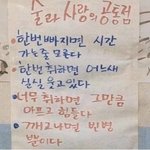 술과 사랑의 공통점
한번 빠지면 시간
가는줄 모른다
한번 취하면 어느새
실실 웃고있다
너무 취하면 그만큼
아프고 힘들다
깨고나면 빈병
뿐이다